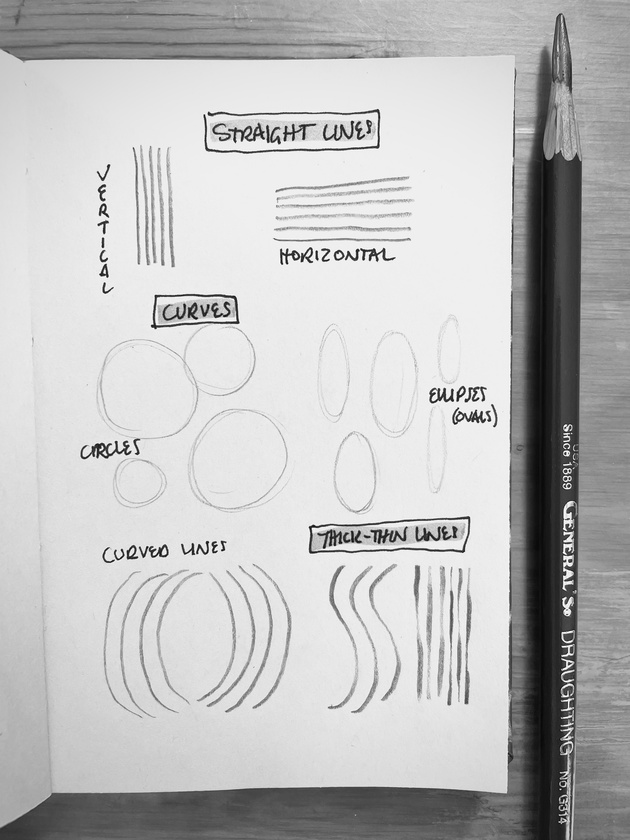 STRAIGHT LINES
VERTICAL
HORIZONTAL
CURVES
ELLIPSES
(OVALS)
CIRCLES
CURVED LINES
THICK-THIN LINES
USA
Since 1889 GENERAL'S® DRAUGHTING No. G314